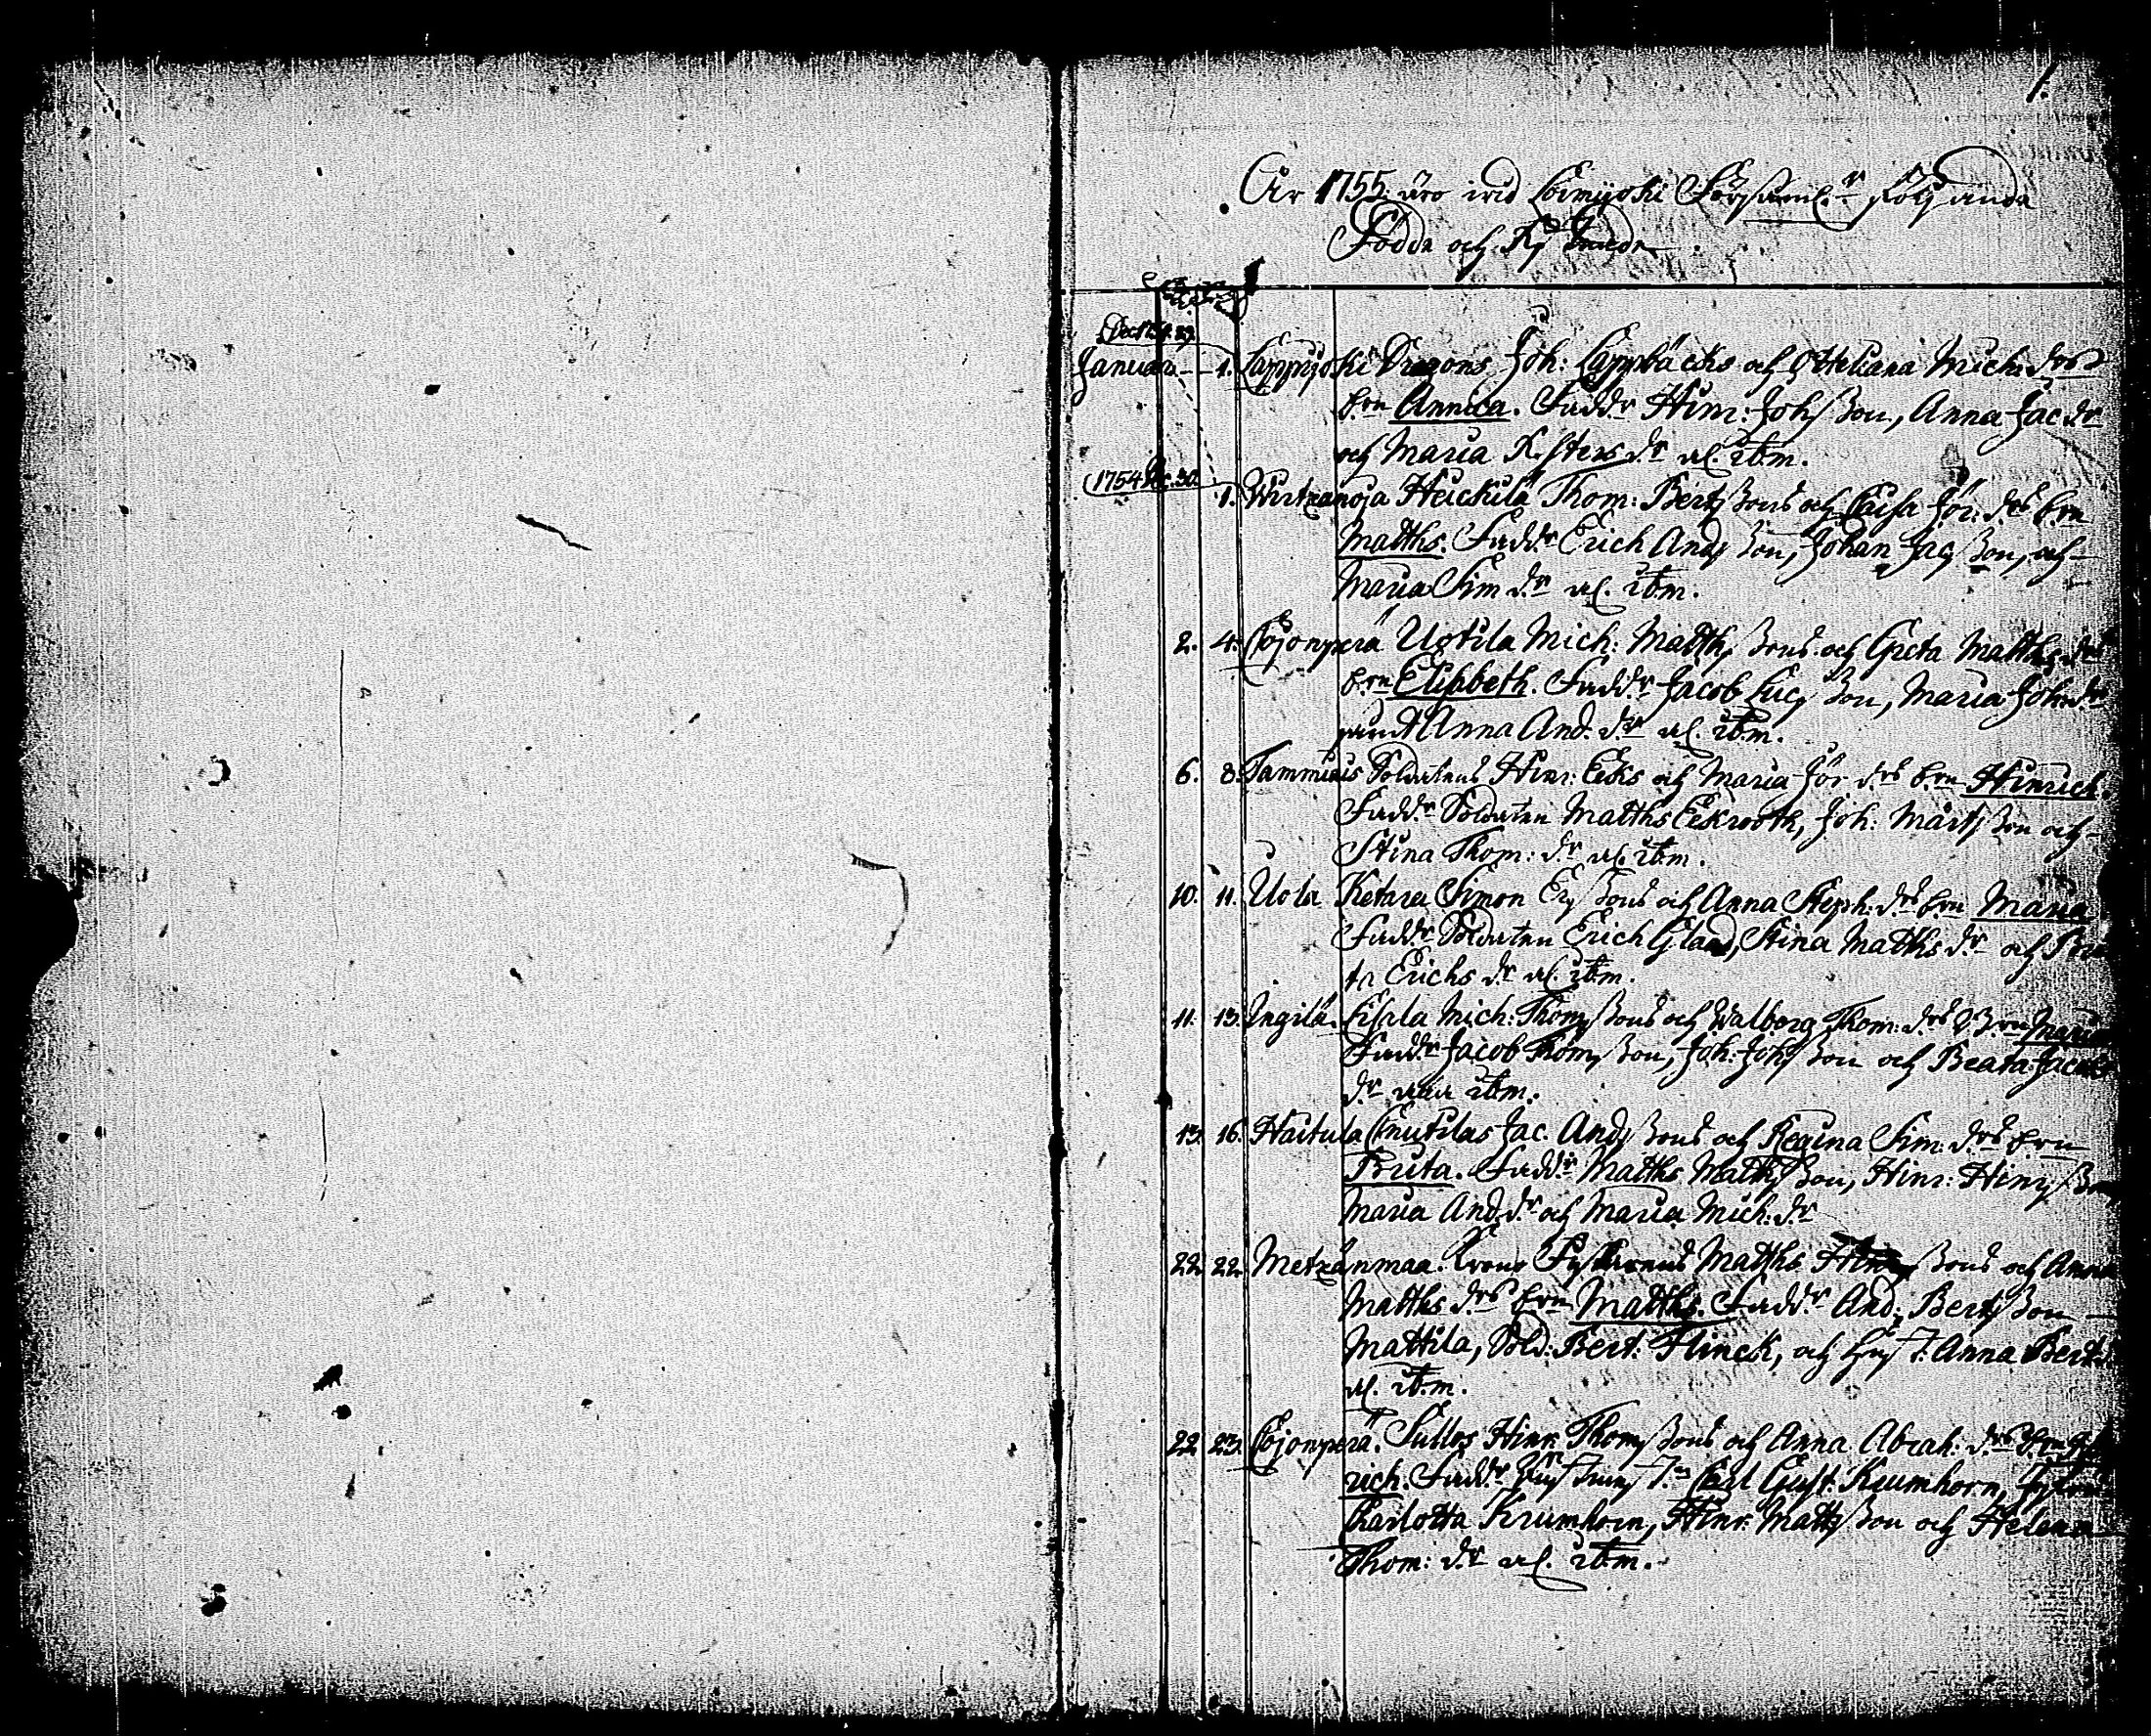 1.
År 1755 äro wid Loimijoki Församl:r följande
Födde och
Dec. 29.
Januar. 1. Lappijoki Dragons Joh: Lappbäcks och Helena Mich: drs
brn Annica. Fadd:r Hinr: Johsson, Anna Jac. dr
och Maria dr al. ibm.
1754 Dec. 30.
1. Wirtzanoja Heickilä Thom: Bertssons och Caisa Jör: drs brn
Matths. Fadd:r Erich Andsson, Johan Jacsson, och
Maria Sim dr al. ibm.
2. 4. Cojonperä Uotila Mich: Matthssons och Greta Matths drs
brn Elisabeth. Fadd:r Jacob Lucsson, Maria Joh. dr
samt Anna And. dr al. ibm.
6. 8. Tammiais Soldatens Hinr: Eeks och Maria Jör drs brn Hinrich.
Fadd:r Soldaten Matths Eekrooth, Joh: Mårtsson och
Stina Thom: dr al. ibm.
10. 11. Uola Ketara Simon Ersons och Anna Steph: drs brn Maria
Fadd:r Soldaten Erich Glad, Stina Matths dr och Bri
ta Erichs dr al. ibm.
11. 13. Ingilä. Eskola Mich: Thomssons och Walborg Thom: drs brn Maria
Fadd:r Jacob Thomsson, Joh: Johsson och Beata Jacobs
dr alla ibm.
13. 16. Haitula Cnutilas Jac. Andssons och Regina Sim: drs brn
Brita. Fadd:r Matths Matthsson, Hinr: Hinrsson
Maria And. dr och Maria Mich: dr
22. 22. Metzänmaa. Matths Hinrssons och Anna
Matths drs brn Matths. Fadd:r And: Bertsson
Mattila, Sold: Bert: Flinck, och Hust. Anna Bert.
al. ibm.
22. 23. Cojonperä. Sullos Hinr. Thomssons och Anna Abrah: drs brn
rich. Fadd:r Carl Gust. Krumhorn,
Charlotta Krumhorn, Hinr: Mattsson och Helena
Thom: dr al. ibm.